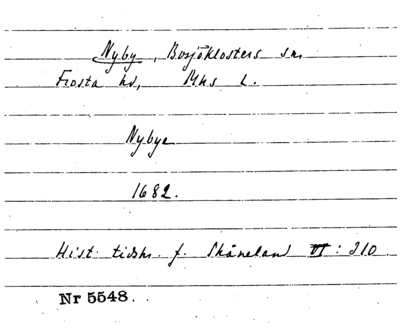 Nyby, Bosjöklosters sn,
Frosta hd, Mhs L.
Nybye
1682.
Hist. tidskr. f. Skåneland VI: 210
Nr 5548.